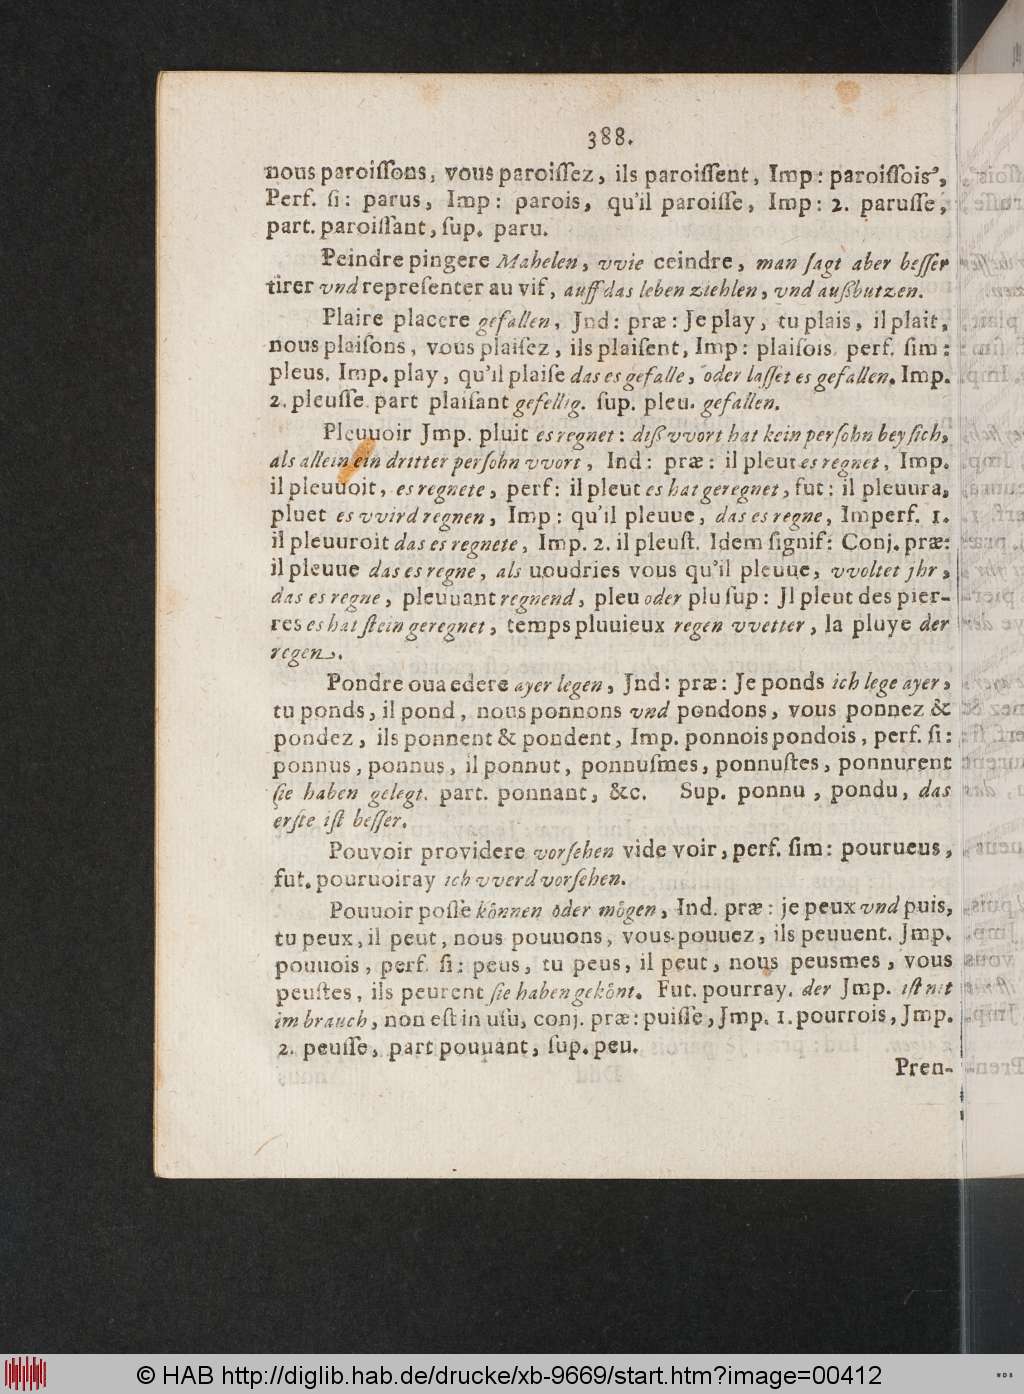 388.
nous paroiſſons, vous paroiſſez, ils paroiſſent, Imp: paroiſſois,
Perf. ſi: parus, Imp: parois, qu'il paroiſſe, Imp: 2. paruſſe,
part. paroiſſant, ſup. paru.
Peindre pingere Mahelen, vvie ceindre, man ſagt aber beſſer
tirer vnd repreſenter au vif, auff das leben ziehlen, vnd außbutzen.
Plaire placere gefallen, Jnd: præ: Je play, tu plais, il plait,
nous plaiſons, vous plaiſez, ils plaiſent, Imp: plaiſois perf. ſim:
pleus. Imp. play, qu'il plaiſe das es gefalle, oder laſſet es gefallen. Imp.
2. pleuſſe part plaiſant gefellig. ſup. pleu. gefallen.
Pleuuoir Jmp. pluit es regnet: diß vvort hat kein perſohn bey ſich,
als allein ein dritter perſohn vvort, Ind: præ: il pleut es regnet, Imp.
il pleuuoit, es regnete, perf: il pleut es hat geregnet, fut: il pleuura,
pluet es vvird regnen, Imp: qu'il pleuue, das es regne, Imperf. 1.
il pleuuroit das es regnete, Imp. 2. il pleuſt. Idem ſignif: Conj. præ:
il pleuue das es regne, als uoudries vous qu'il pleuue, vvoltet jhr,
das es regne, pleuuant regnend, pleu oder plu ſup: Jl pleut des pier-
res es hat ſtein geregnet, temps pluuieux regen vvetter, la pluye der
regen.
Pondre oua edere ayer legen, Jnd: præ: Je ponds ich lege ayer,
tu ponds, il pond, nous ponnons vnd pondons, vous ponnez &
pondez, ils ponnent & pondent, Imp. ponnois pondois, perf. ſi:
ponnus, ponnus, il ponnut, ponnuſmes, ponnuſtes, ponnurent
ſie haben gelegt. part. ponnant, &c. Sup. ponnu, pondu, das
erſte iſt beſſer.
Pouvoir providere vorſehen vide voir, perf. ſim: pourueus,
fut. pouruoiray ich vverd vorſehen.
Pouuoir poſſe koͤnnen oder moͤgen, Ind. præ: je peux vnd puis,
tu peux, il peut, nous pouuons, vous pouuez, ils peuuent. Jmp.
pouuois, perf. ſi: peus, tu peus, il peut, nous peusmes, vous
peuſtes, ils peurent ſie haben gekoͤnt. Fut. pourray. der Jmp. iſt nit
im brauch, non eſt in uſu, conj. præ: puiſſe, Jmp. 1. pourrois, Jmp.
2. peuſſe, part pouuant, ſup. peu.
Pren-
© HAB http://diglib.hab.de/drucke/xb-9669/start.htm?image=00412